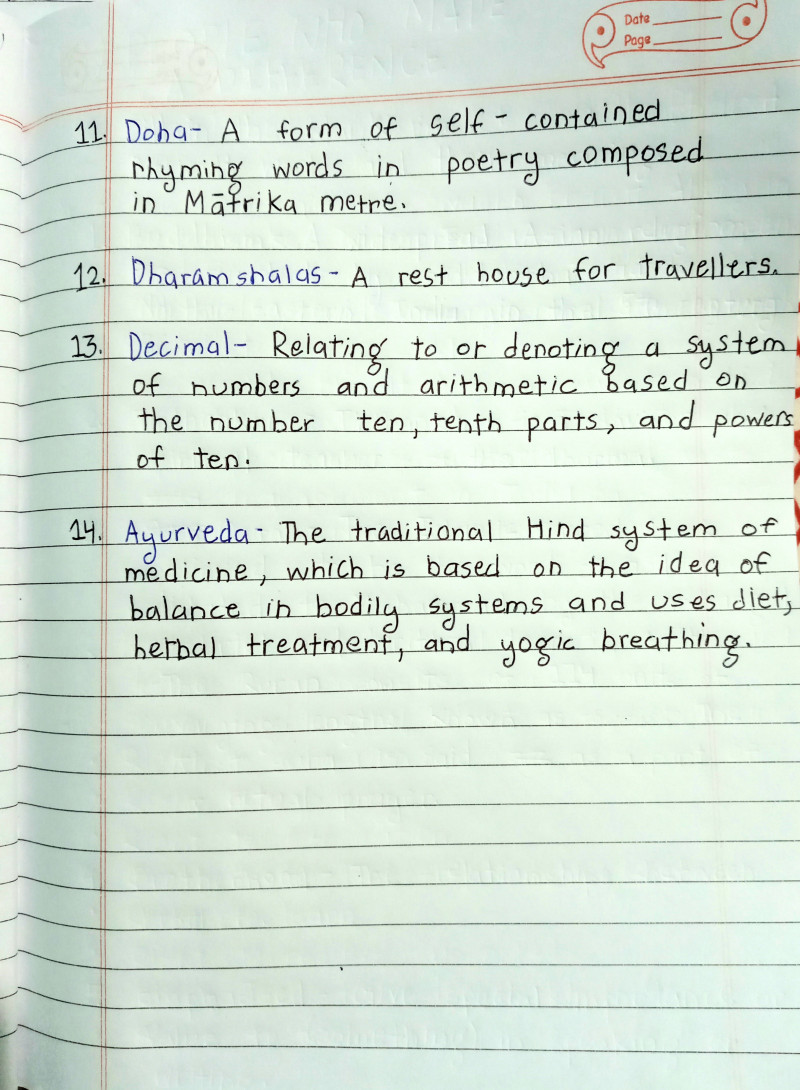 Date
Page
11. Doha- A form of self-contained
rhyming words in poetry composed
in Mātrika metre.
12. Dharamshalas- A rest house for travellers.
13. Decimal- Relating to or denoting a system
of numbers and arithmetic based on
the number ten, tenth parts, and powers
of ten.
14. Ayurveda- The traditional Hind system of
medicine, which is based on the idea of
balance in bodily systems and uses diet,
herbal treatment, and yogic breathing.